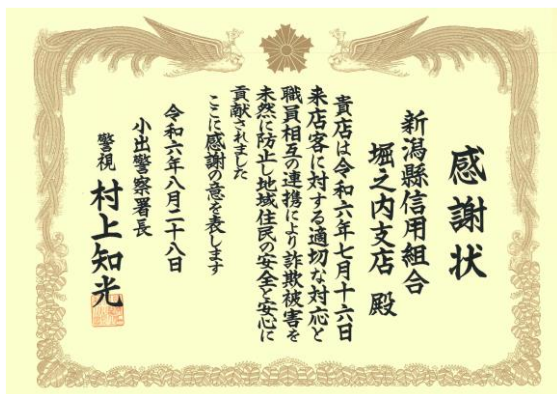 感謝状
新潟縣信用組合
堀之内支店 殿
貴店は令和六年七月十六日
来店客に対する適切な対応と
職員相互の連携により詐欺被害を
未然に防止し地域住民の安全と安心に
貢献されました
ここに感謝の意を表します
令和六年八月二十八日
小出警察署長
警視 村上知光